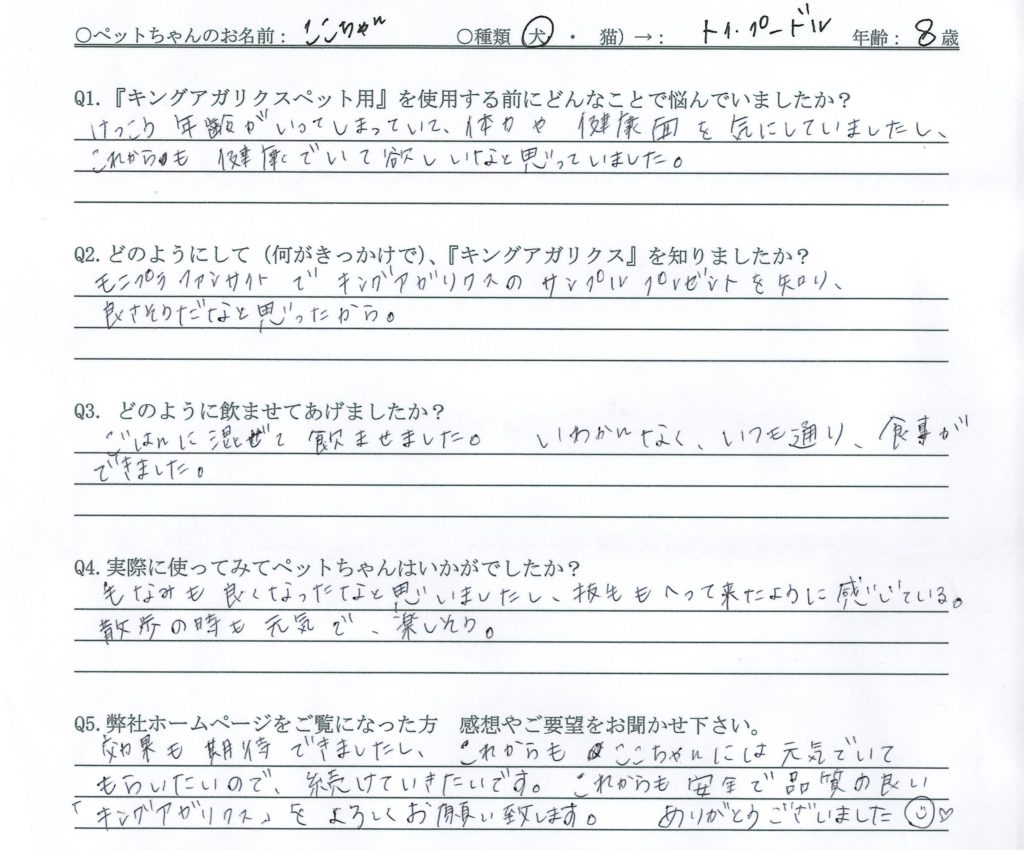 ○ペットちゃんのお名前： ここちゃん ○種類（犬・猫）→： トイ・プードル 年齢：8歳
Q1.『キングアガリクスペット用』を使用する前にどんなことで悩んでいましたか？
けっこう年齢がいってしまっていて、体力や健康面を気にしていましたし、
これからも健康でいて欲しいなと思っていました。
Q2.どのようにして（何がきっかけで）、『キングアガリクス』を知りましたか？
モニプラファンサイトでキングアガリクスのサンプルプレゼントを知り、
良さそうだなと思ったから。
Q3. どのように飲ませてあげましたか？
ごはんに混ぜて飲ませました。 いわかんなく、いつも通り、食事が
できました。
Q4.実際に使ってみてペットちゃんはいかがでしたか？
毛なみも良くなったなと思いましたし、抜毛もへって来たように感じている。
散歩の時も元気で、楽しそう。
Q5.弊社ホームページをご覧になった方 感想やご要望をお聞かせ下さい。
効果も期待できましたし、これからもここちゃんには元気でいて
もらいたいので、続けていきたいです。これからも安全で品質の良い
「キングアガリクス」をよろしくお願い致します。 ありがとうございました